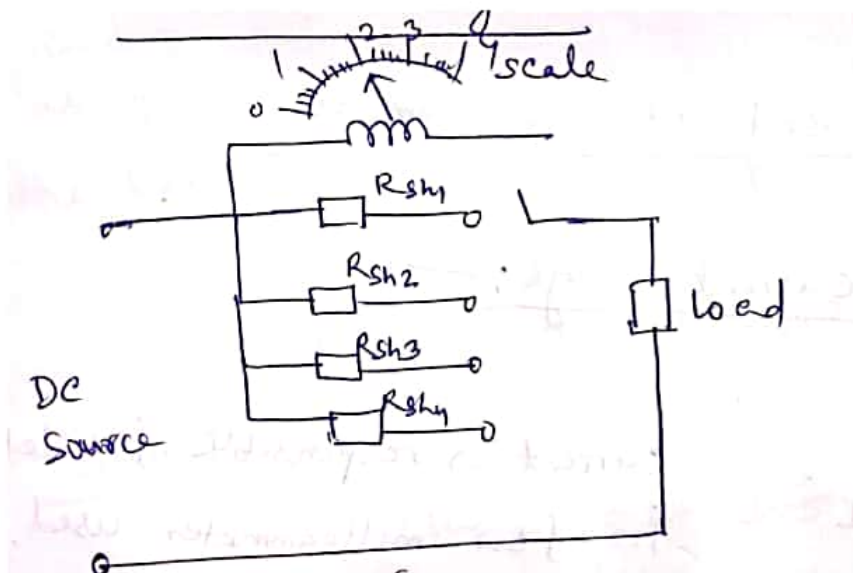 0 1 2 3 4
scale
Rsh1
Rsh2
Rsh3
Rsh4
Load
DC
Source